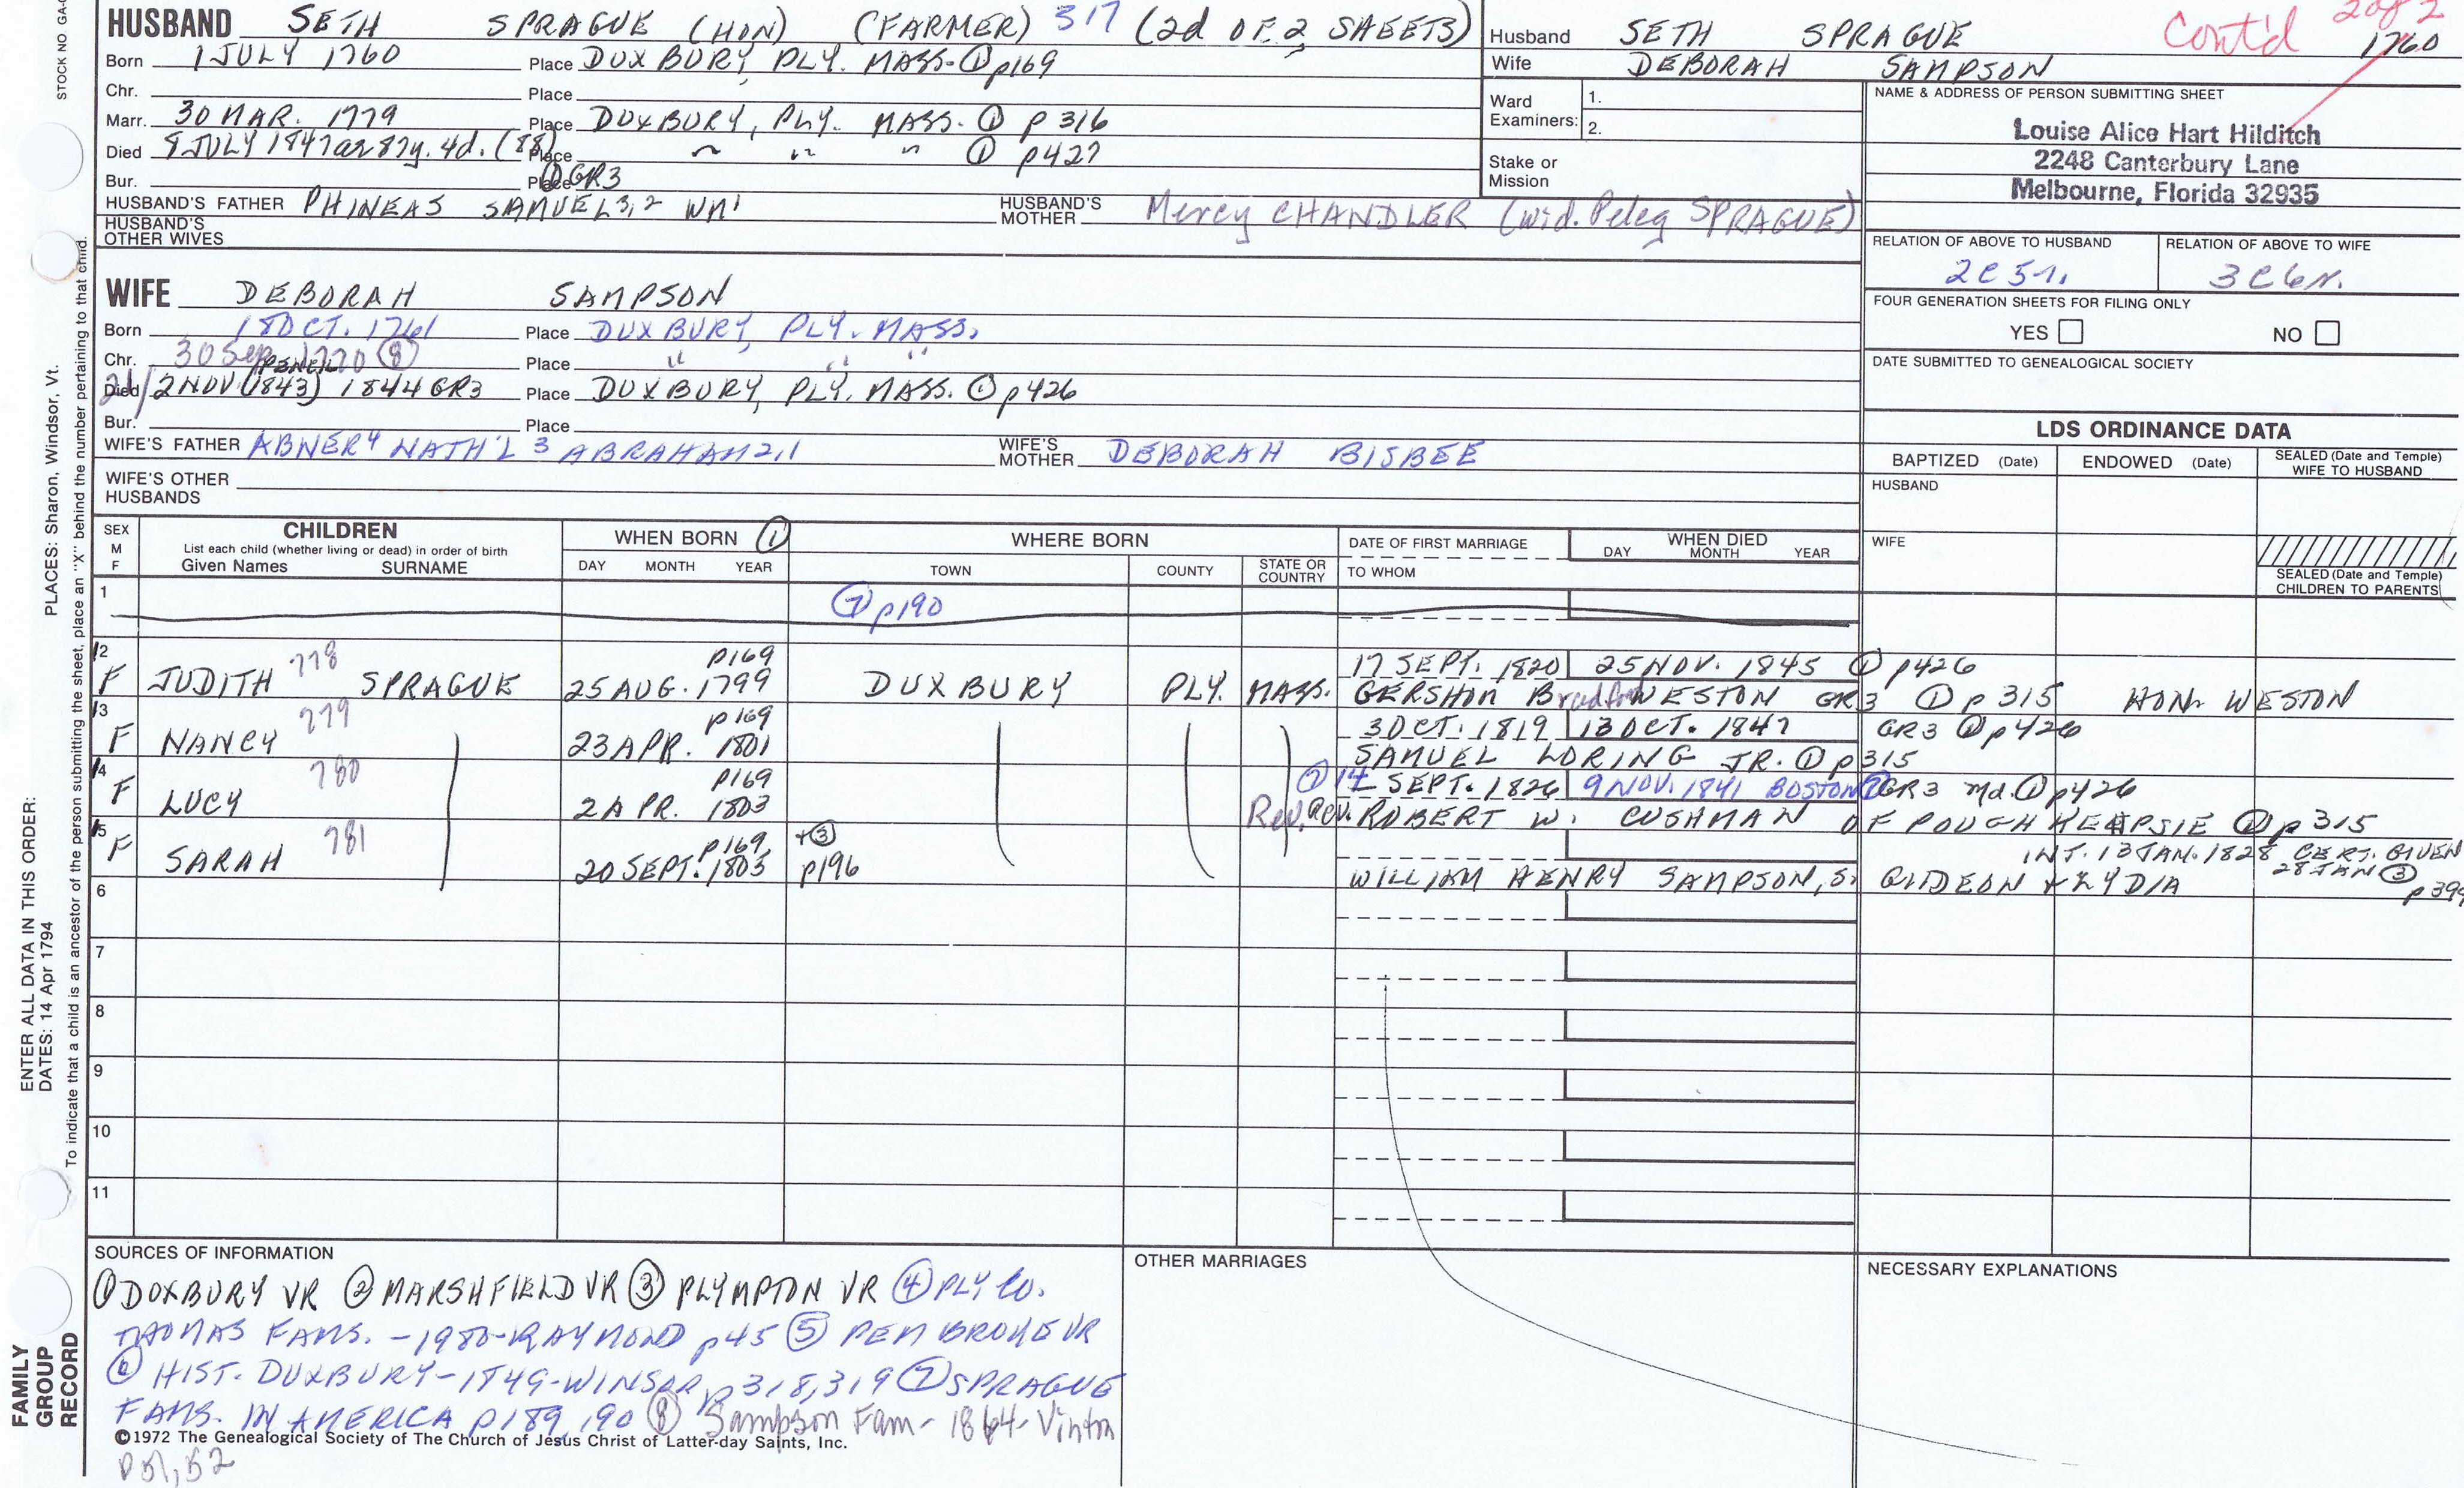 HUSBAND SETH SPRAGUE (HON) (FARMER) 317 (2d OF 2 SHEETS)
Born 1 JULY 1760 Place DUXBURY, PLY. MASS. ① p169
Chr. Place
Marr. 30 MAR. 1779 Place DUXBURY, PLY. MASS. ① p 316
Died 8 JULY 1847 ae 87y. 4d. (88) Place " " " ① p427
Bur. Place ① GR3
HUSBAND'S FATHER PHINEAS SAMUEL 3,2 WM 1 HUSBAND'S MOTHER Mercy CHANDLER (wid. Peleg SPRAGUE)
HUSBAND'S OTHER WIVES
WIFE DEBORAH SAMPSON
Born 18 OCT. 1761 Place DUXBURY, PLY. MASS.
Chr. 30 Sep 1770 ⑧ Place " " "
Died 2 NOV (1843) 1844 GR3 Place DUXBURY, PLY. MASS. ① p426
Bur. Place
WIFE'S FATHER ABNER 4 NATH'L 3 ABRAHAM 2,1 WIFE'S MOTHER DEBORAH BISBEE
WIFE'S OTHER HUSBANDS
Husband SETH SPRAGUE Cont'd 2 of 2
1760
Wife DEBORAH SAMPSON
Ward Examiners: 1.
2.
Stake or Mission
NAME & ADDRESS OF PERSON SUBMITTING SHEET
Louise Alice Hart Hilditch
2248 Canterbury Lane
Melbourne, Florida 32935
RELATION OF ABOVE TO HUSBAND RELATION OF ABOVE TO WIFE
2C 5r. 3C 6r.
FOUR GENERATION SHEETS FOR FILING ONLY
YES NO
DATE SUBMITTED TO GENEALOGICAL SOCIETY
LDS ORDINANCE DATA
BAPTIZED (Date) ENDOWED (Date) SEALED (Date and Temple) WIFE TO HUSBAND
HUSBAND
WIFE
SEALED (Date and Temple) CHILDREN TO PARENTS
SEX M F
CHILDREN
List each child (whether living or dead) in order of birth
Given Names SURNAME
WHEN BORN ①
DAY MONTH YEAR
WHERE BORN
TOWN COUNTY STATE OR COUNTRY
DATE OF FIRST MARRIAGE
TO WHOM
WHEN DIED
DAY MONTH YEAR
1 ⑦ p190
12 778 p169 17 SEPT. 1820 25 NOV. 1845 ① p426
F JUDITH SPRAGUE 25 AUG. 1799 DUXBURY PLY. MASS. GERSHOM Bradford WESTON GR3 ① p 315 HON. WESTON
13 779 p169 3 OCT. 1819 13 OCT. 1847 GR3 ① p426
F NANCY 23 APR. 1801 SAMUEL LORING JR. ① p315
14 780 p169 ⑦ 14 SEPT. 1826 9 NOV. 1841 BOSTON ⑦ GR3 md. ① p426
F LUCY 2 APR. 1803 Rev. Rev. ROBERT W. CUSHMAN OF POUGHKEEPSIE ① p 315
15 781 p169, +③ INT. 13 JAN. 1828 CERT. GIVEN 28 JAN ③ p399
F SARAH 20 SEPT. 1803 p196 WILLIAM HENRY SAMPSON, S. GIDEON & LYDIA
6
7
8
9
10
11
SOURCES OF INFORMATION
① DUXBURY VR ② MARSHFIELD VR ③ PLYMPTON VR ④ PLY Co.
THOMAS FAMS. - 1980 - RAYMOND p45 ⑤ PEMBROKE VR
⑥ HIST. DUXBURY - 1849 - WINSOR p 318, 319 ⑦ SPRAGUE
FAMS. IN AMERICA p189, 190 ⑧ Sampson Fam - 1864 - Vinton
©1972 The Genealogical Society of The Church of Jesus Christ of Latter-day Saints, Inc.
p 51, 52
OTHER MARRIAGES
NECESSARY EXPLANATIONS
STOCK NO. GA-
PLACES: Sharon, Windsor, Vt.
ENTER ALL DATA IN THIS ORDER:
DATES: 14 Apr 1794
To indicate that a child is an ancestor of the person submitting the sheet, place an "X" behind the number pertaining to that child.
FAMILY
GROUP
RECORD